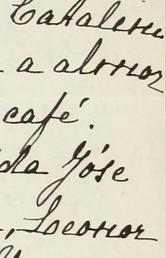 Catalin
a almor
café.
da Jóse
, Leonor